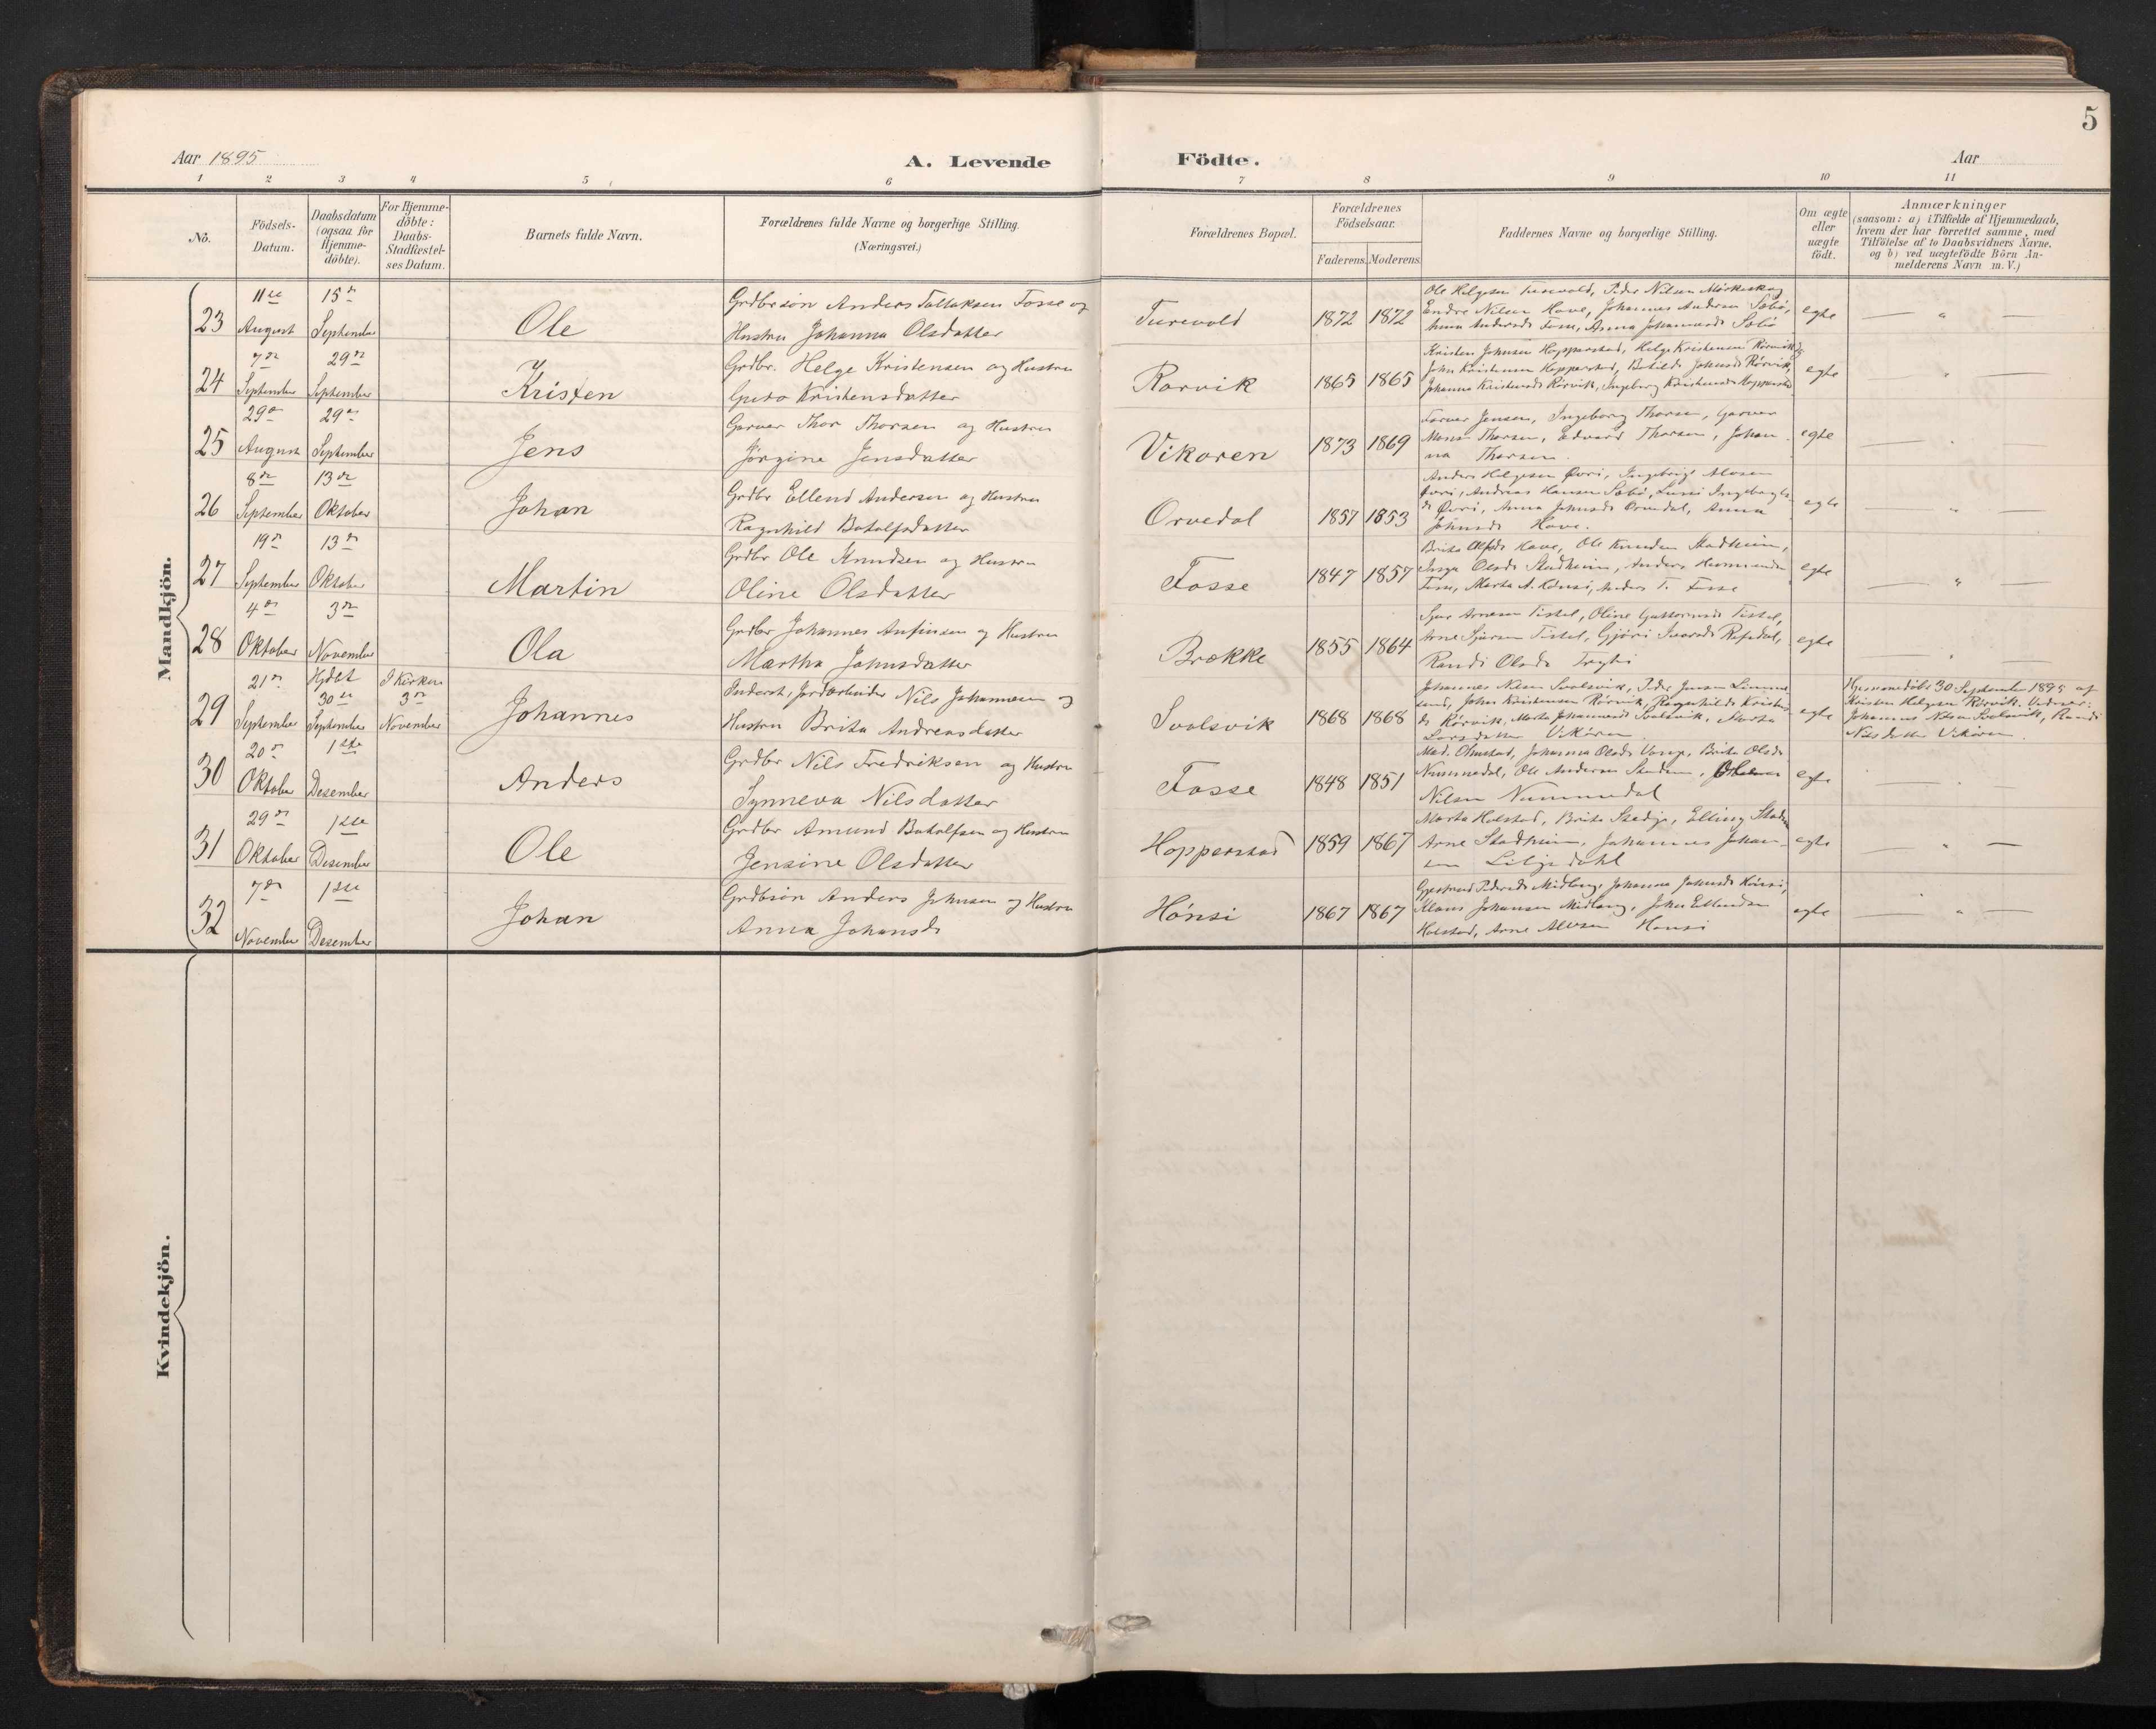 5
Aar 1895
A. Levende Födte.
Aar
1 2 3 4 5 6 7 8 9 10 11
No.
Födsels-
Datum.
Daabsdatum
(ogsaa for
Hjemme-
döbte).
For Hjemme-
döbte:
Daabs-
Stadfæstel-
ses Datum.
Barnets fulde Navn.
Forældrenes fulde Navne og borgerlige Stilling.
(Næringsvei.)
Forældrenes Bopæl.
Forældrenes
Födselsaar.
Faderens. Moderens.
Faddernes Navne og borgerlige Stilling.
Om ægte
eller
uægte
födt.
Anmærkninger
(saasom: a) i Tilfælde af Hjemmedaab,
hvem der har forrettet samme, med
Tilföielse af to Daabsvidners Navne.
og b) ved uægtefödte Börn An-
melderens Navn m. V.)
Mandkjön.
23
11te
August
15de
September
Ole
Grdbrsøn Anders Tollaksen Fosse og
Hustru Johanna Olsdatter
Turevold
1872 1872
Ole Helgesen Turevold, Peder Nilsen Mörkeskog
Endre Nilsen Hove, Johannes Andersen Sæbö,
Anna Andersd. Fosse, Anna Johannesd. Sæbö
egte
— " —
24
7de
September
29de
September
Kristen
Grdbr. Helge Kristensen og Hustru
Guro Kristensdatter
Rørvik
1865 1865
Kristen Johnsen Hopperstad, Helge Kristensen Rørvik
John Kristensen Hopperstad, Botilde Johansd. Rørvik,
Johanna Kristensd. Rörvik, Ingeborg Kristensd. Hopperstad
egte
" —
25
29de
August
29de
September
Jens
Garver Thor Thorsen og Hustru
Jørgine Jensdatter
Vikøren
1873 1869
Farver Jensen, Ingeborg Thorsen, Garver
Mons Thorsen, Edvard Thorsen, Johan-
na Thorsen.
egte
— " —
26
8de
September
13de
Oktober
Johan
Grdbr Ellend Andersen og Hustru
Ragnhild Botolfsdatter
Orvedal
1857 1853
Anders Helgesen Øvri, Ingebrigt
Øvri, Andreas Hansen Sæbö,
Øvri, Anna Johnsd. Orvedal, Anna
Johnsd. Hove.
egte
— " —
27
19de
September
13de
Oktober
Martin
Grdbr Ole Knudsen og Hustru
Oline Olsdatter
Fosse
1847 1857
Brita Olsd. Hove, Ole Knudsen Stadheim,
Inga Olsd. Stadheim, Anders
Fosse, Marta A. Hönsi, Anders T. Fosse
egte
— " —
28
4de
Oktober
3de
November
Ola
Grdbr Johannes Anfinsen og Hustru
Martha Johnsdatter
Brække
1855 1864
Sjur Arnesen Tistel, Oline Guttormsd. Tistel,
Arne Sjursen Tistel, Gjöri Ivarsd. Refsdal,
Randi Olsd.
egte
— " —
29
21de
September
Hjdöbt
30te
September
I Kirken
3de
November
Johannes
Inderst, Jordarbeider Nils Johannesen og
Hustru Brita Andreasdatter
Svolsvik
1868 1868
Johannes Nilsen Svolsvik, Peder Jensen Limme-
sand, John Kristensen Rörvik, Ragnhilde Kristens-
d. Rörvik, Marta Johannesd. Svolsvik, Marta
Larsdatter Vikören
egte
Hjemmedöbt 30 September 1895 af
Kristen Helgesen Rörvik. Vidner:
Johannes Nilsen Svolsvik, Randi
Nilsdatter Vikören
30
20de
Oktober
1ste
Desember
Anders
Grdbr Nils Fredriksen og Hustru
Synneva Nilsdatter
Fosse
1848 1851
Mad. Olmstad, Johanna Olsd. Vange, Brita Olsd.
Nummedal, Ole Andersen
Nilsen Nummedal
egte
— " —
31
29de
Oktober
1ste
Desember
Ole
Grdbr Amund Botolfsen og Hustru
Jensine Olsdatter
Hopperstad
1859 1867
Marta Holstad, Brita Stedje, Elling
Arne Stadheim, Johannes Johan-
sen Liljedahl
egte
— " —
32
7de
November
1ste
Desember
Johan
Grdbrsøn Anders Johnsen og Hustru
Anna Johansd.
Hónsi
1867 1867
Pedersd. Midlang, Johanna Johnsd. Hónsi,
Klaus Johansen Midlang, John Ellendsen
Holstad, Arne Hónsi
egte
— " —
Kvindekjön.